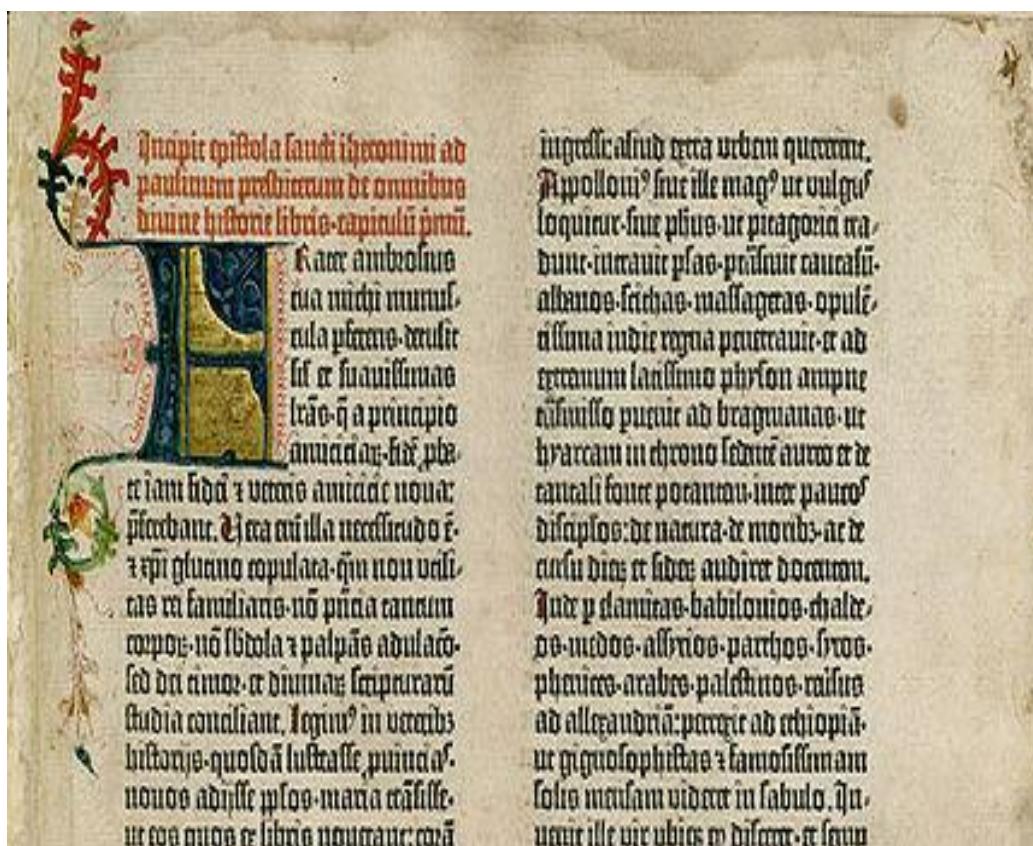 Incipit epistola sancti iheronimi ad
paulinum presbiterum de omnibus
diuine historie libris·capitulū p̄mū.
Frater ambrosius
tua michi munus-
cula ꝑferens·detulit
sil̄ et suauissimas
lr̄as·q̄ a principio
amiciciaꝝ·fidē ꝓba-
te iam fidei ⁊ veteris amicicie noua:
p̄ferebant. Vera em̄ illa necessitudo ē·
⁊ xp̄i glutino copulata·qm̄ non vtili-
tas rei familiaris·nō pn̄cia tantum
corpoꝝ·nō sb̄dola ⁊ palpās adulaco᷒·
sed dei timor·et diuinaꝝ scripturarū
studia conciliant. Legimꝰ in veteribꝫ
historijs·quosdā lustrasse ꝓuincias·
nouos adijsse pp̄los·maria trāsisse·
ut eos quos ex libris nouerant: corā
ingressꝰ aliud extra vrbem quererent.
Appolloniꝰ siue ille magꝰ ut vulgus
loquitur·siue ph̄us·ut pitagorici tra-
dunt·intrauit ꝑsas·ptrāsiuit caucasū·
albanos·scithas·massagetas·opulē-
tissima indie regna penetrauit·et ad
extremum latissimo physon ampne
trāsmisso puenit ad bragmanas·ut
hyarcam in throno sedentē aureo et de
tantali fonte potantem·inter paucos
discip̄los: de natura·de moribꝫ·ac de
cursu dieꝝ et sideꝝ audiret docentem.
Inde ꝑ elamitas·babilonios·chalde-
os·medos·assyrios·parthos·syros·
phenices·arabes·palestinos·reuersus
ad allexandriā: perrexit ad ethiopiā·
ut gignosophistas ⁊ famosissimam
solis mensam videret in sabulo. In-
uenit ille vir vbiqꝫ qd̄ disceret·et semp̄